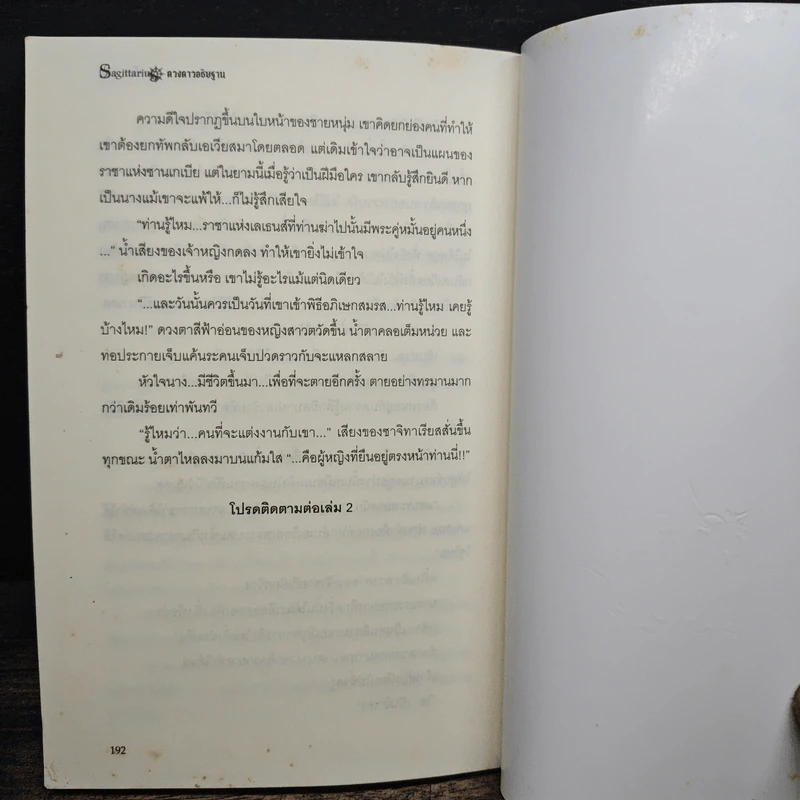 Sagittarius ดวงดาวอธิษฐาน
ความดีใจปรากฏขึ้นบนใบหน้าของชายหนุ่ม เขาคิดยกย่องคนที่ทำให้
เขาต้องยกทัพกลับเอเวียสมาโดยตลอด แต่เดิมเข้าใจว่าอาจเป็นแผนของ
ราชาแห่งซานเกเบีย แต่ในยามนี้เมื่อรู้ว่าเป็นฝีมือใคร เขากลับรู้สึกยินดี หาก
เป็นนางแม้เขาจะแพ้ให้...ก็ไม่รู้สึกเสียใจ
“ท่านรู้ไหม...ราชาแห่งเลเธนส์ที่ท่านฆ่าไปนั้นมีพระคู่หมั้นอยู่คนหนึ่ง
...” น้ำเสียงของเจ้าหญิงกดลง ทำให้เขายิ่งไม่เข้าใจ
เกิดอะไรขึ้นหรือ เขาไม่รู้อะไรแม้แต่นิดเดียว
“...และวันนั้นควรเป็นวันที่เขาเข้าพิธีอภิเษกสมรส...ท่านรู้ไหม เคยรู้
บ้างไหม!” ดวงตาสีฟ้าอ่อนของหญิงสาวตวัดขึ้น น้ำตาคลอเต็มหน่วย และ
ทอประกายเจ็บแค้นระคนเจ็บปวดราวกับจะแหลกสลาย
หัวใจนาง...มีชีวิตขึ้นมา...เพื่อที่จะตายอีกครั้ง ตายอย่างทรมานมาก
กว่าเดิมร้อยเท่าพันทวี
“รู้ไหมว่า...คนที่จะแต่งงานกับเขา...” เสียงของซาจิทาเรียสสั่นขึ้น
ทุกขณะ น้ำตาไหลลงมาบนแก้มใส “...คือผู้หญิงที่ยืนอยู่ตรงหน้าท่านนี่!!”
โปรดติดตามต่อเล่ม 2
192